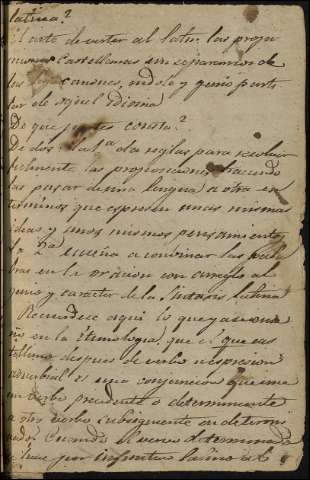 latina?
El arte de verter al latin las propo
siciones Castellanas sin separarnos de
los canones, indole y genio parti
lar de aquel Idioma
De que partes consta?
De dos: la 1ª da reglas para
fielmente las proposiciones haciendo
las pasar de una lengua a otra en
terminos que espresen unas mismas
ideas y unos mismos pensamientos
La 2ª enseña a combinar las pala
bras en la oracion con arreglo al
genio y caracter de la Sintaxis latina
Recuerdese aqui lo que ya se
en la Etimologia, que el que cas
tellano despues de verbo o espresion
adverbial es una conjuncion que une
un verbo precedente o determinante
a otro verbo subsiguiente o determi
nado. Cuando el verbo determinado
por infinitivo latino el